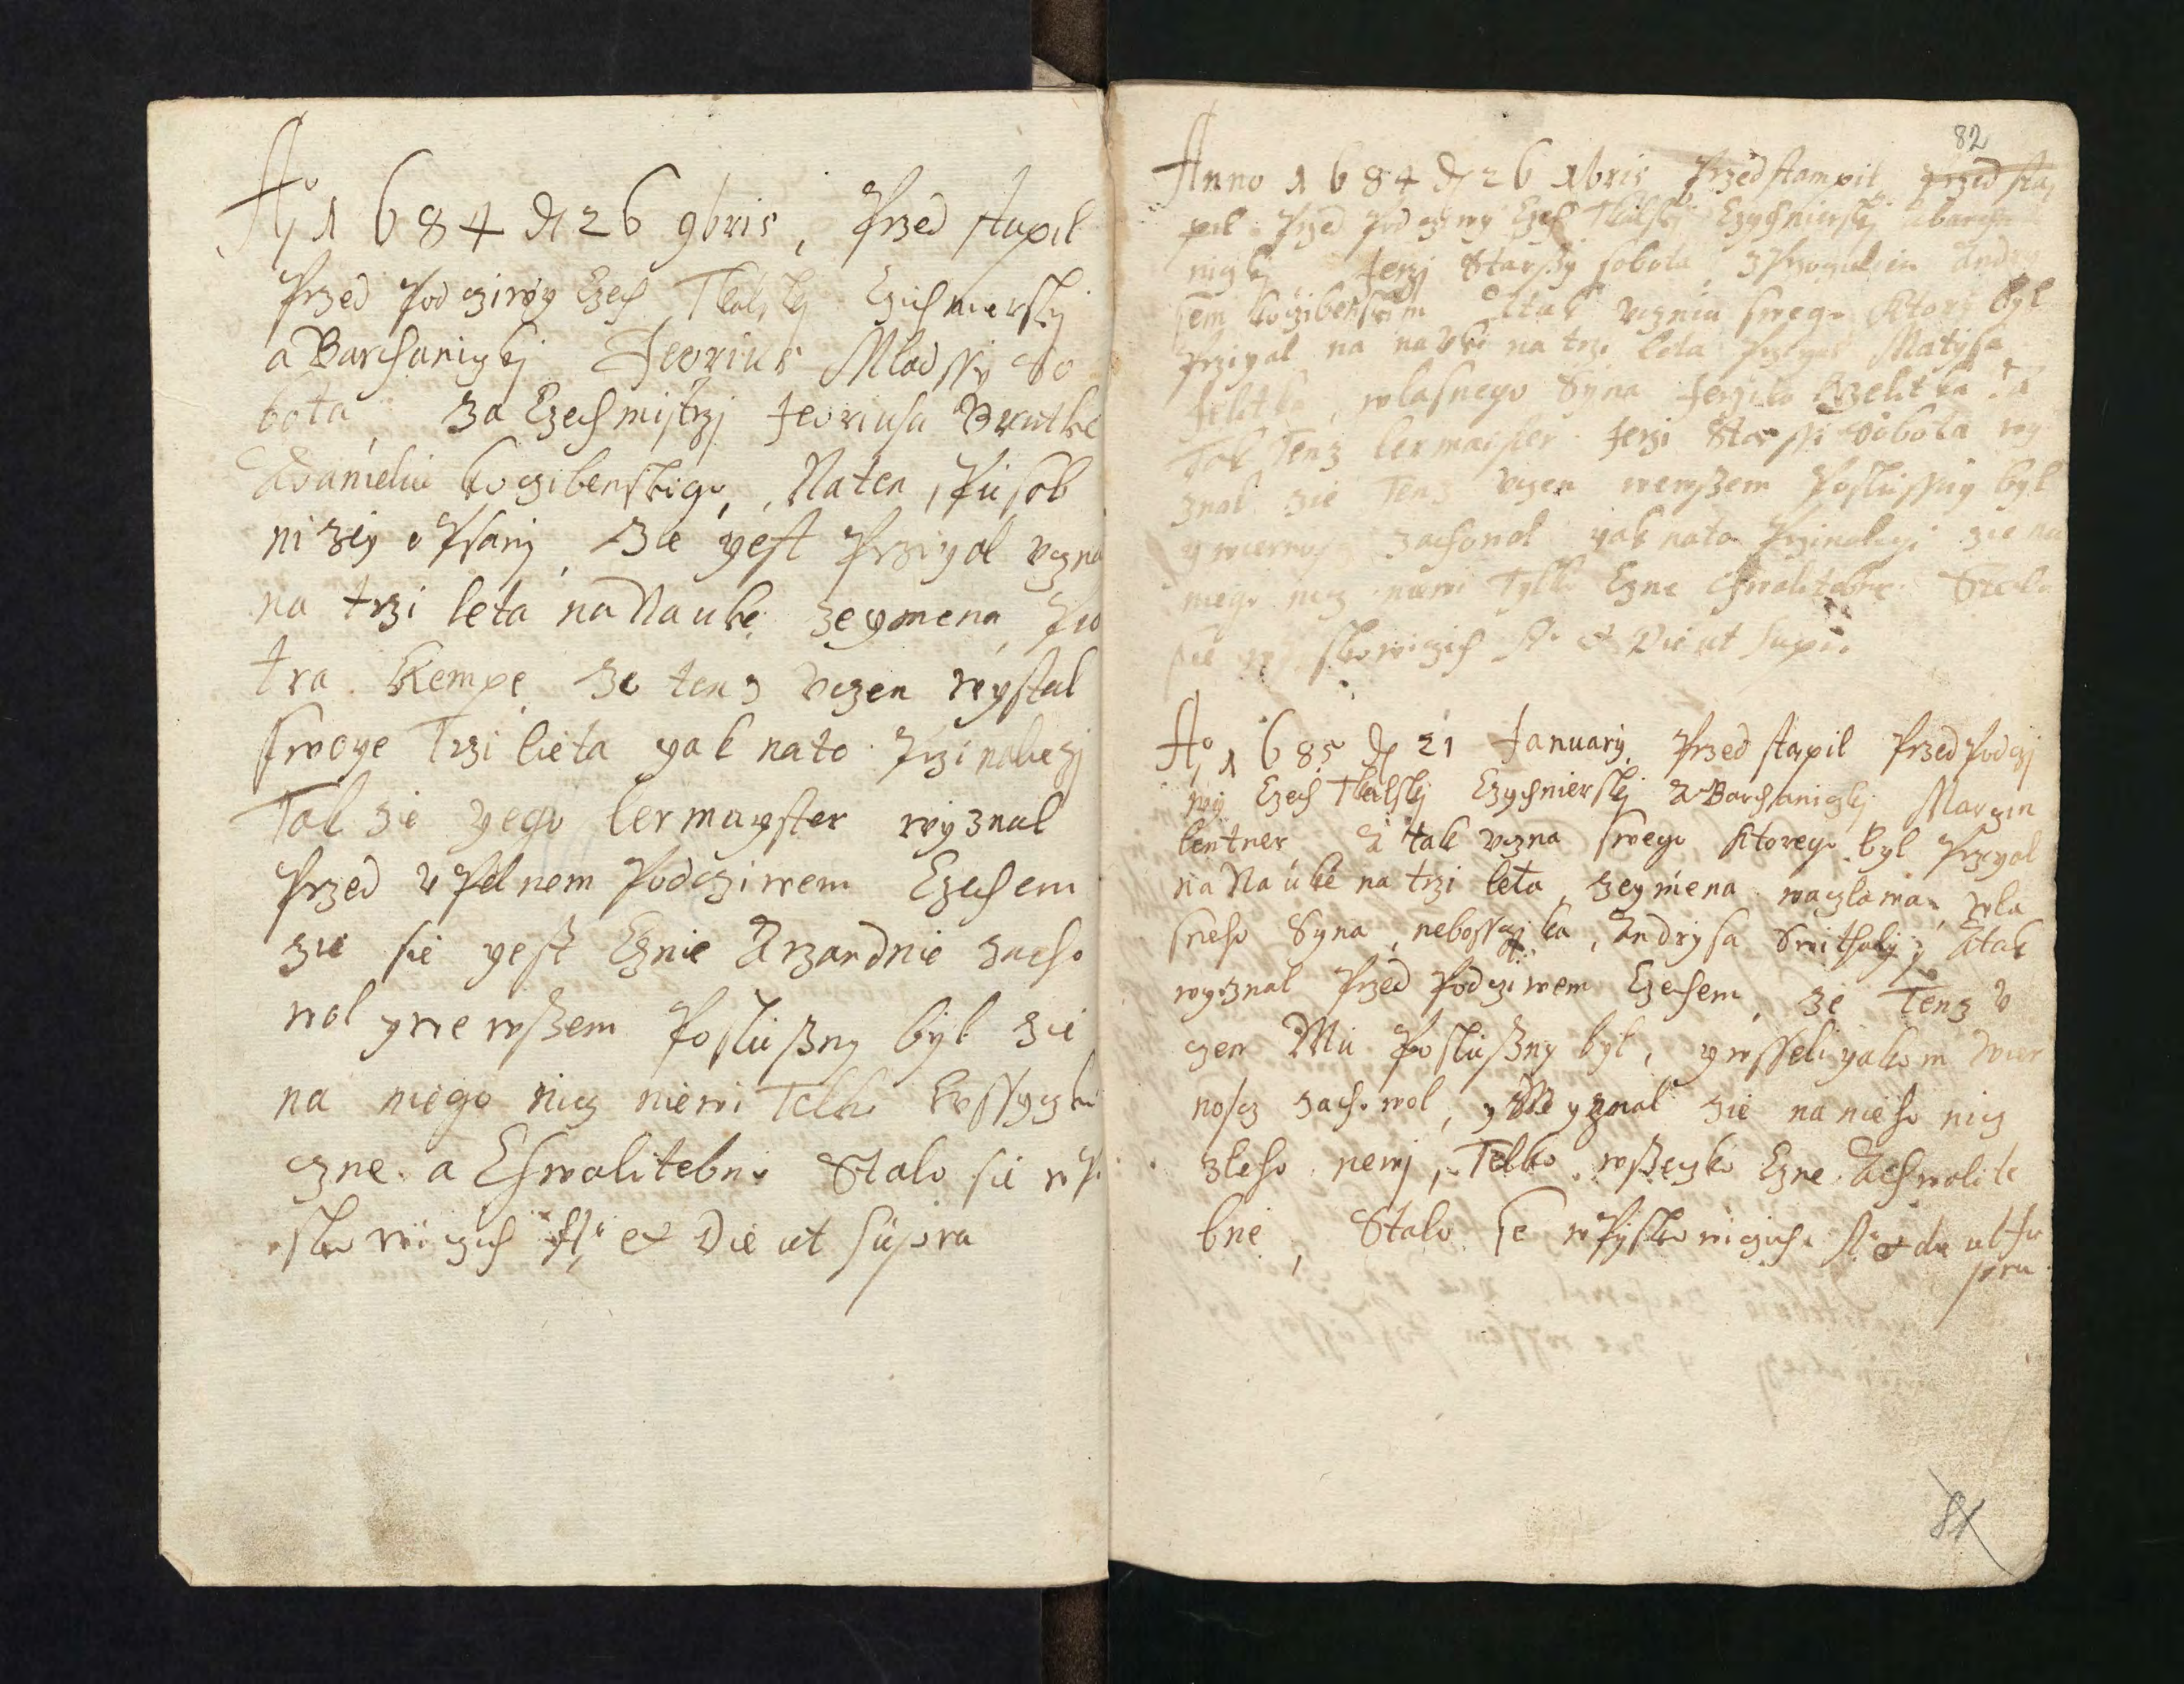 Ao 1684 d 26 9bris, Przed stapil
Przed Podcziwy Czech Tkalsky Czichnierskj
a Barchaniczkj Jeorius Mladssy So
bota, Za Czechmistrzj Jeoriusa Brutke
Adamelin Koczibenskigo, Naten spusob
nizey opsany, Ze yest Przyal uczna
na trzi leta na Nauke zeymena Pio
tra Kempe ze tenz uczen wystal
swoye Trzi lieta yak nato Przinaliezj
Tak zie yego lermayster wyznal
Przed upelnem Podcziwem Czechem
zie sie yest Cznie Arzandnie zacho
wal ywe wszem Posluszny byl zie
na niego nicz niewi Telko Wssyczko
czne a Chwalitebne Stalo sie w P
skowiczich Ao et Die ut supra
82
Anno 1684 d 26 Xbris Przedstampil Przed sta
pil Przed Podcziwy Czech Tkalskj Czychnierskj abarcha
niczkj Jerzj Starssy sobota, Andry
sem Koczibenskim Atak ucznia swego Ktory byl
Przyal na nauke na trzi leta Matysa
wlasnego Syna Jerzika
Tak Tenz lermaister Jerzi Starssi Sobota wy
znal zie Tenz uczen wewszem Poslussny byl
y wiernosz zachowal yak nato Przinalezi zie na
niego nicz niewi Tylko Czne Chwalitebne Stalo
sie w Pskowiczich Ao et Die ut Supra
Ao 1685 d 21 January Przed stapil Przed Podczj
wy Czech Tkalskj Czychnierskj a Barchaniczkj Marczin
lentner A tak uczna swego Ktorego byl Przyal
na Nauke na trzi leta, zeymena waczlawa, wla
sneho Syna, nebossczika, Andrysa Atak
wyznal Przed Podcziwem Czechem, ze Tenz u
czen Mu Posluszny byl, ywsseliyakom wier
noscz zachowal, y Wyznal zie na nieho nicz
zleho newj, Telko wszeczko Czne Achwalite
bne, Stalo se w Pyskowiczich Ao et die ut su
pra
81